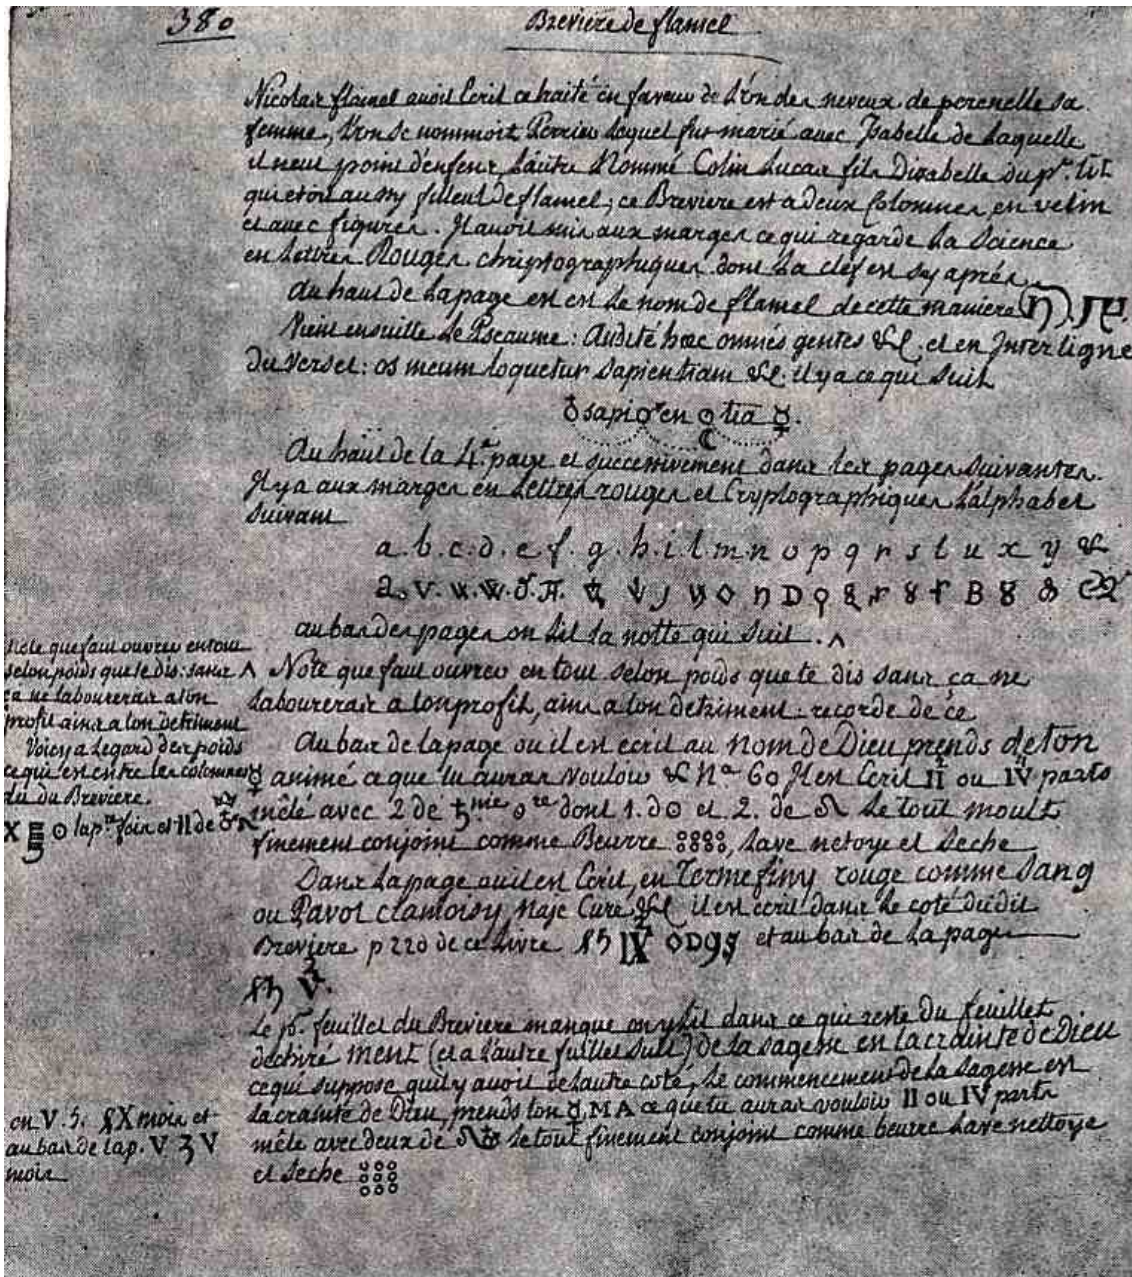 380
Breviere de flamel
Nicolas flamel avoit Ecrit ce traité en faveur de l'un des neveux de perenelle sa
femme, l'un se nommoit Perrier lequel fut marié avec Isabelle de laquelle
il n'eut point d'enfens, l'autre Nommé Colin Lucas fils Disabelle du pr. lit
qui etoit aussy filleul de flamel; ce Breviere est a deux Colomnes en velin
et avec figures. Il avoit mis aux marges ce qui regarde la Science
en Lettres Rouges chriptographiques dont la clef est sy aprés
au haut de la page est le nom de flamel de cette maniere
Vient ensuitte le Pseaume: Audité hæc omnés gentes &c. et en Interligne
du Verset: os meum loquetur sapientiam &c. il y a ce qui suit
♁ sapi ♂ en ☉ tia ☿.
☾
Au haut de la 4.e page et successivement dans les pages suivantes.
Il y a aux marges en Lettres rouges et Cryptographiques L'alphabet
suivant
a. b. c. d. e. f. g. h. i. l. m. n o p q r s t u x y &
au bas des pages on lit la notte qui suit. ^
Note que faut ouvrer en tout selon poids que te dis sans ça ne
labourerais a ton profit, ains a ton detriment: recorde de ce
Au bas de la page ou il est ecrit au Nom de Dieu prends de ton
☿ animé ce que tu auras vouloir & N.o 60 Il est Ecrit II ou IV parts
mêlé avec 2 de dont 1. d ☉ et 2. de ♌ Le tout moult
finement conjoint comme Beurre, Lave netoye et Seche
Dans la page ou il est Ecrit, en Terme finy rouge comme Sang
ou Pavot clamoisy Naje Cure &c il est ecrit dans le coté dudit
Breviere p 220 de ce Livre IX et au bas de la page
V.
Le pr. feuillet du Breviere manque on y lit dans ce qui reste du feuillet
dechiré MENT (et a l'autre fuillet suit) de la sagesse en la crainte de Dieu
ce qui suppose qu'il y avoit de l'autre coté, le commencement de la Sagesse est
la crainte de Dieu, prends ton ☿, MA ce que tu auras vouloir II ou IV parts
mêle avec deux de ♌ Le tout finement conjoint comme beurre Lave nettoye
et Seche
Note que faut ouvrer en tout
selon poids que te dis: sans ^
ça ne labourerais a ton
profit ains a ton detriment
Voicy a Legard des poids
ce qui est entre les colomnes
du du Breviere.
X ☉ la p.re fois et II de
en V. 5. X mois et
au bas de la p. V 3 V
mois